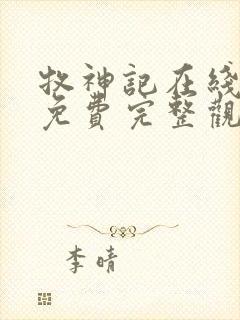 牧神記在綫
免費完整觀
李晴